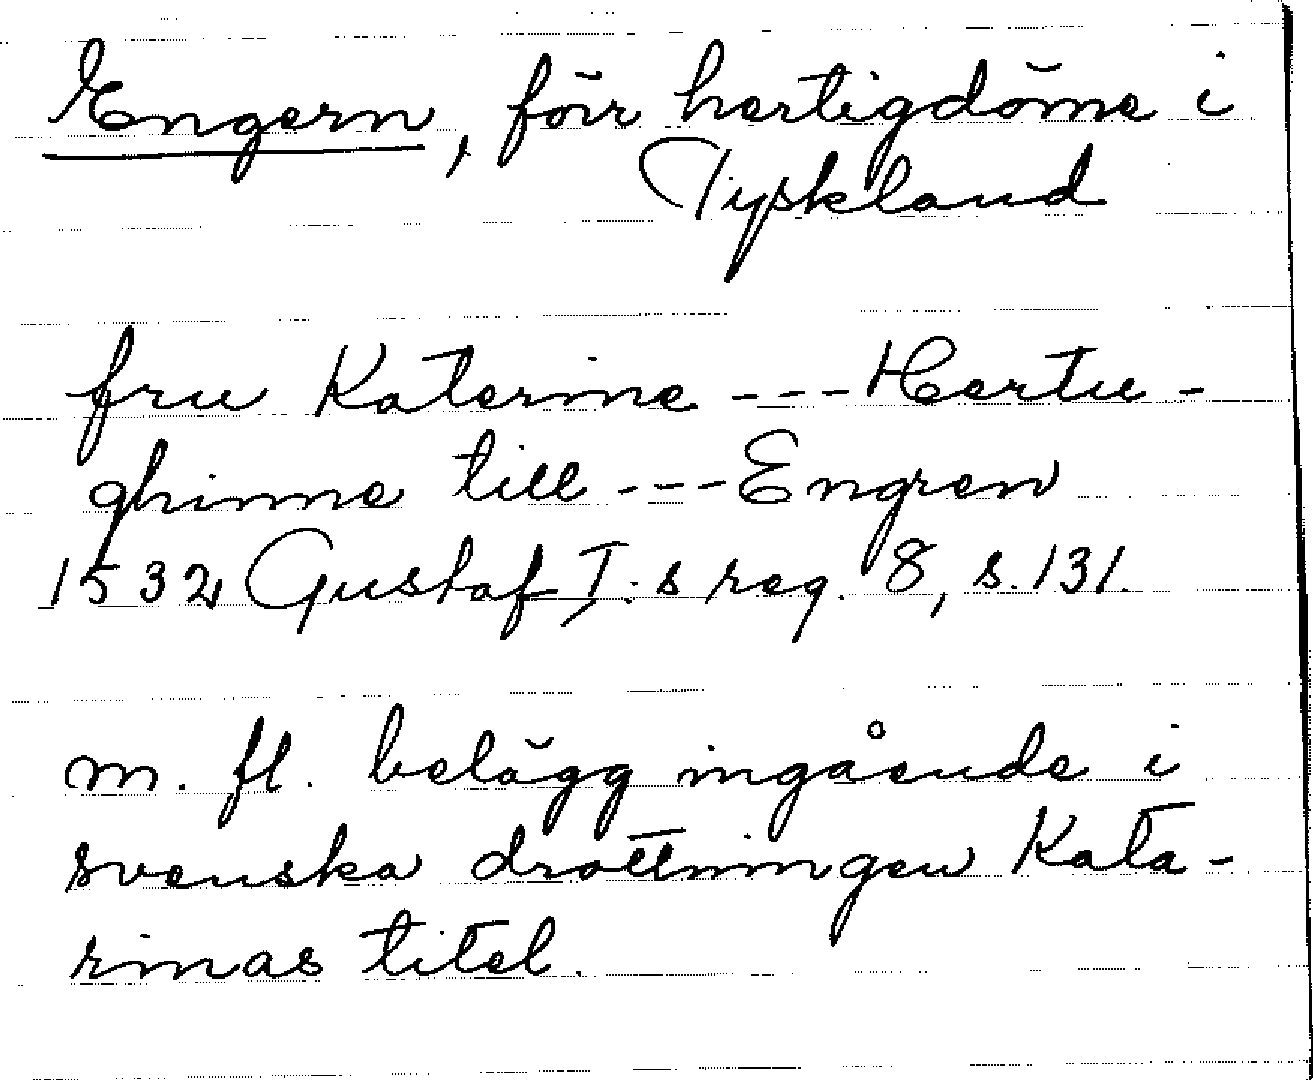 Engern, förr hertigdöme i
Tyskland
fru Katerine --- Hertu-
ghinne till --- Engren
1532 Gustaf I:s reg. 8, s. 131.
m. fl. belägg ingående i
svenska drottningen Kata-
rinas titel.